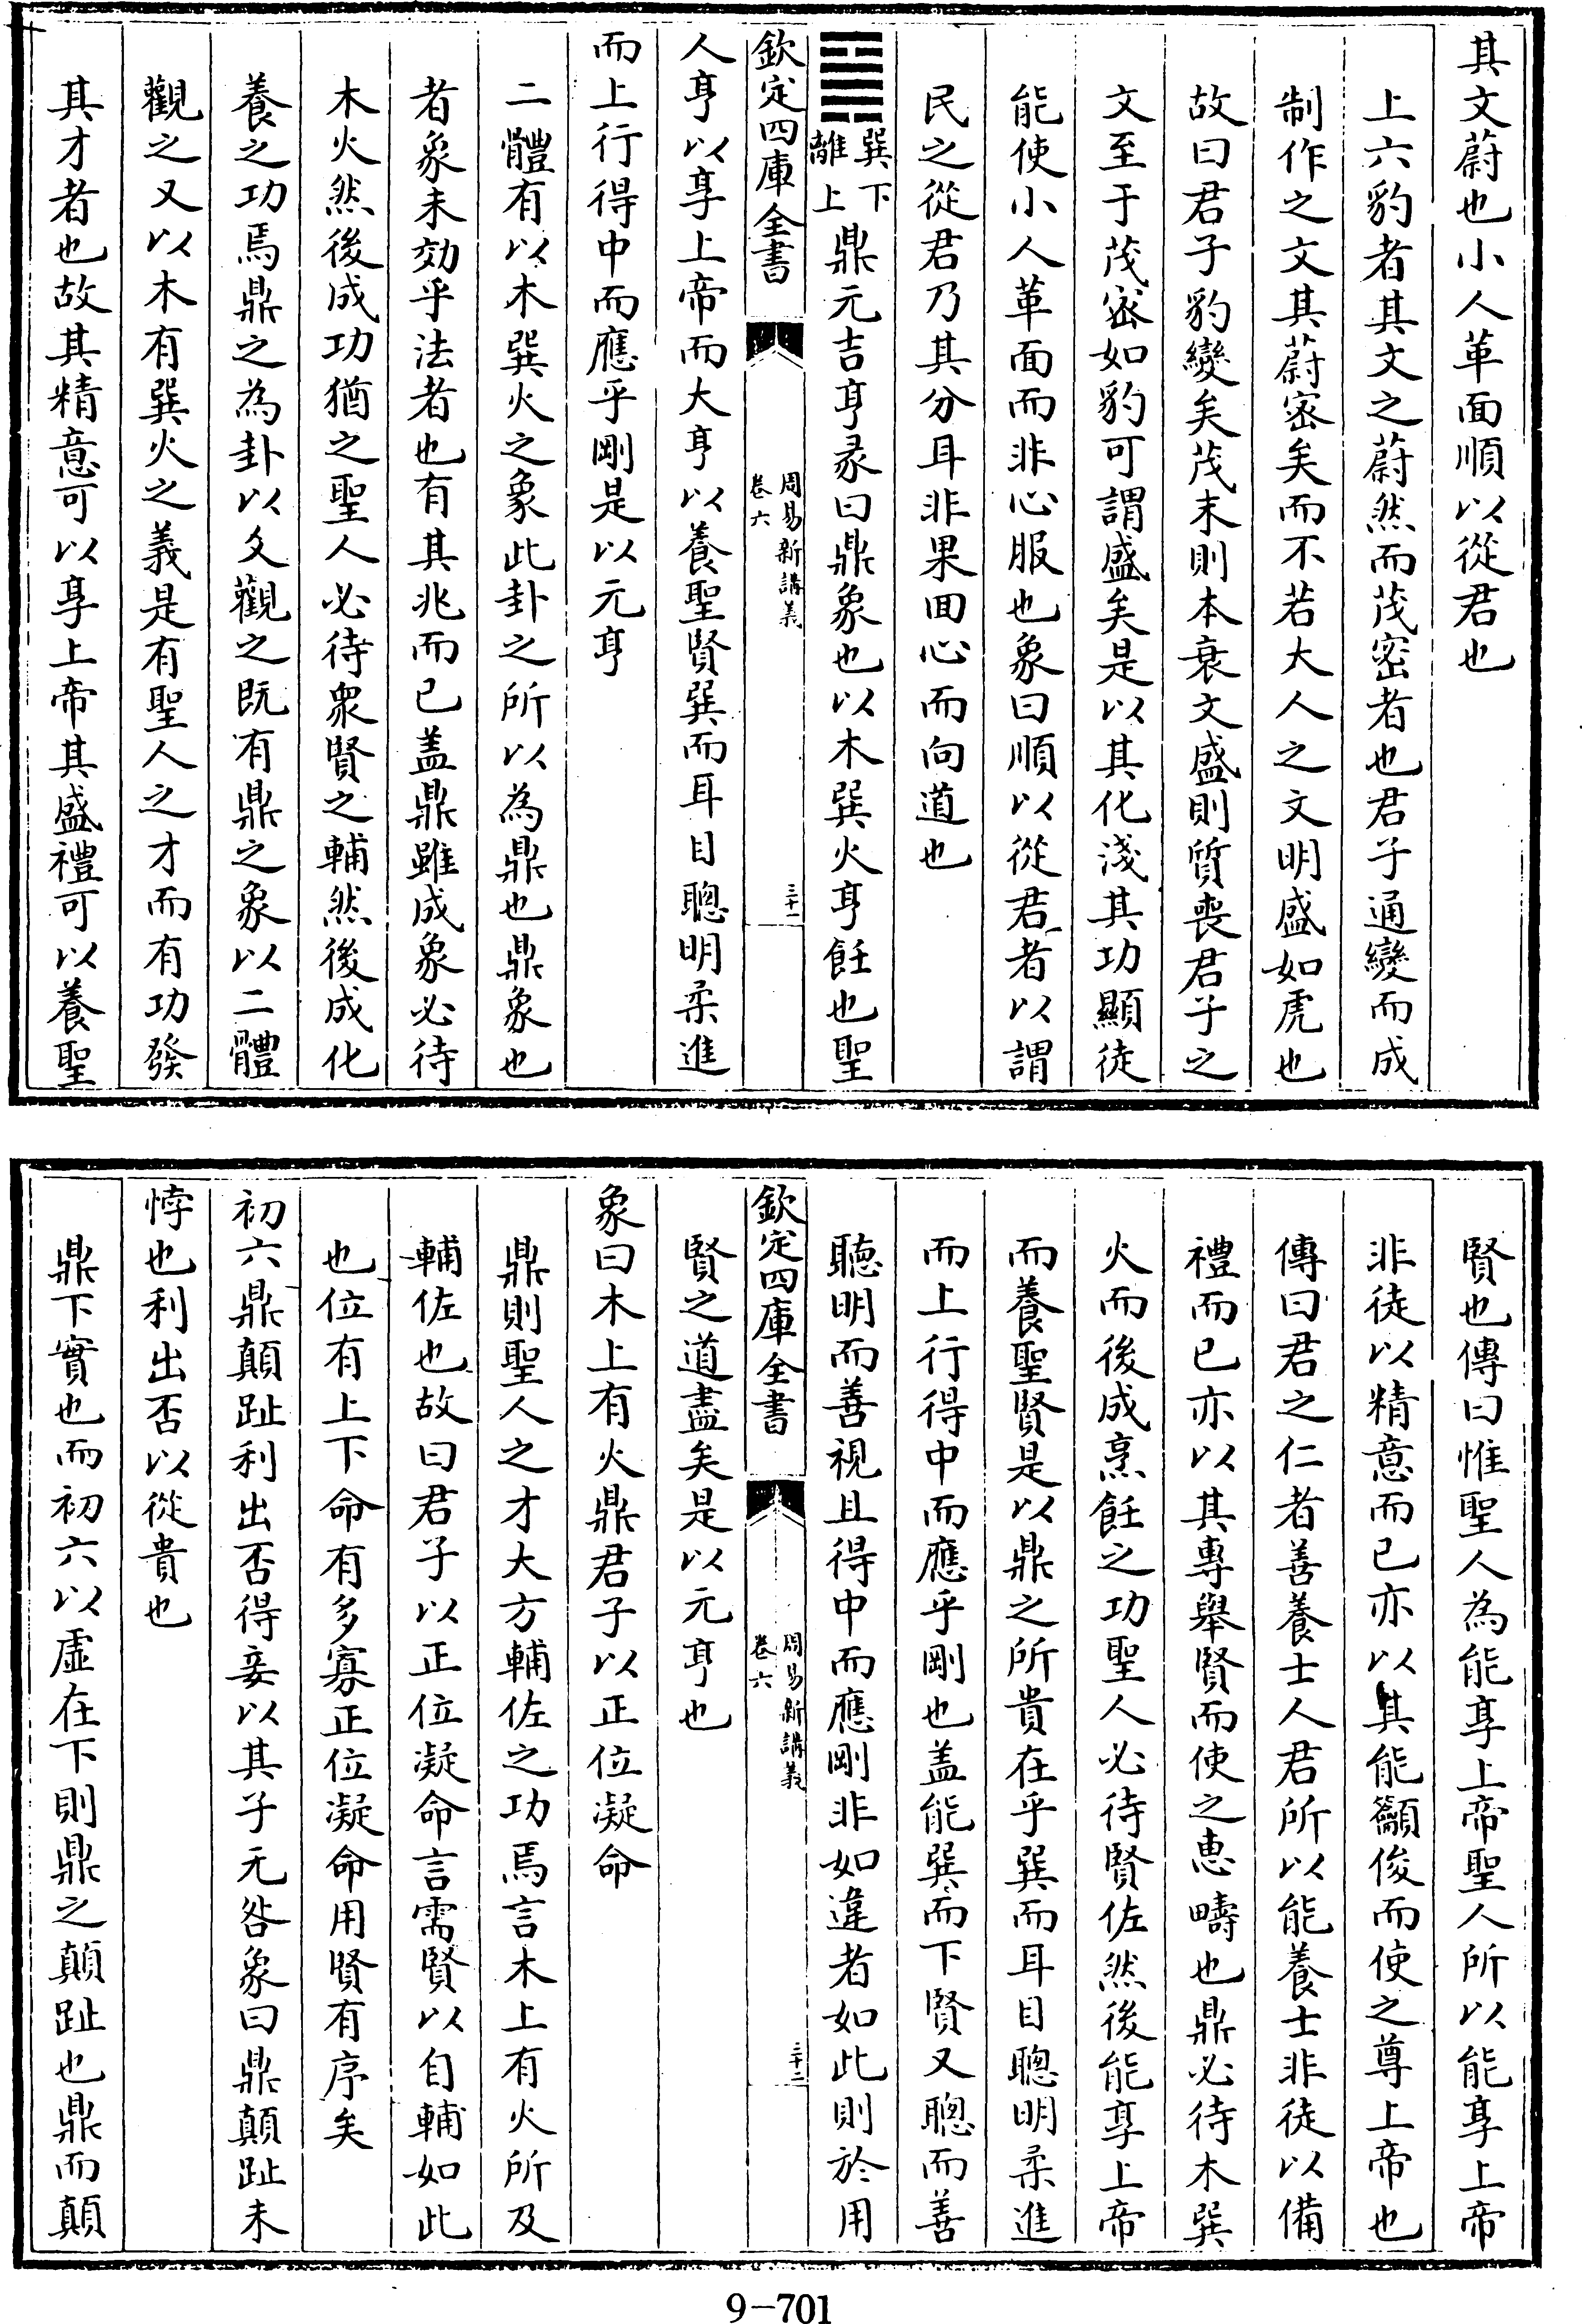 其文蔚也小人革面順以從君也
上六豹者其文之蔚然而茂密者也君子通變而成
制作之文其蔚密矣而不若大人之文明盛如虎也
故曰君子豹變矣茂末則本衰文盛則質喪君子之
文至于茂密如豹可謂盛矣是以其化淺其功顯徒
能使小人革面而非心服也象曰順以從君者以謂
民之從君乃其分耳非果回心而向道也
巽下離上鼎元吉亨彖曰鼎象也以木巽火亨飪也聖
欽定四庫全書
周易新講義
卷六
三十一
人亨以享上帝而大亨以養聖賢巽而耳目聰明柔進
而上行得中而應乎剛是以元亨
二體有以木巽火之象此卦之所以為鼎也鼎象也
者象未効乎法者也有其兆而已盖鼎雖成象必待
木火然後成功猶之聖人必待衆賢之輔然後成化
養之功焉鼎之為卦以爻觀之既有鼎之象以二體
觀之又以木有巽火之義是有聖人之才而有功發
其才者也故其精意可以享上帝其盛禮可以養聖
賢也傳曰惟聖人為能享上帝聖人所以能享上帝
非徒以精意而已亦以其能籲俊而使之尊上帝也
傳曰君之仁者善養士人君所以能養士非徒以備
禮而已亦以其專舉賢而使之惠疇也鼎必待木巽
火而後成烹飪之功聖人必待賢佐然後能享上帝
而養聖賢是以鼎之所貴在乎巽而耳目聰明柔進
而上行得中而應乎剛也盖能巽而下賢又聰而善
聽明而善視且得中而應剛非如違者如此則於用
欽定四庫全書
周易新講義
卷六
三十二
賢之道盡矣是以元亨也
象曰木上有火鼎君子以正位凝命
鼎則聖人之才大方輔佐之功焉言木上有火所及
輔佐也故曰君子以正位凝命言需賢以自輔如此
也位有上下命有多寡正位凝命用賢有序矣
初六鼎顛趾利出否得妾以其子无咎象曰鼎顛趾未
悖也利出否以從貴也
鼎下實也而初六以虛在下則鼎之顛趾也鼎而顛
9-701